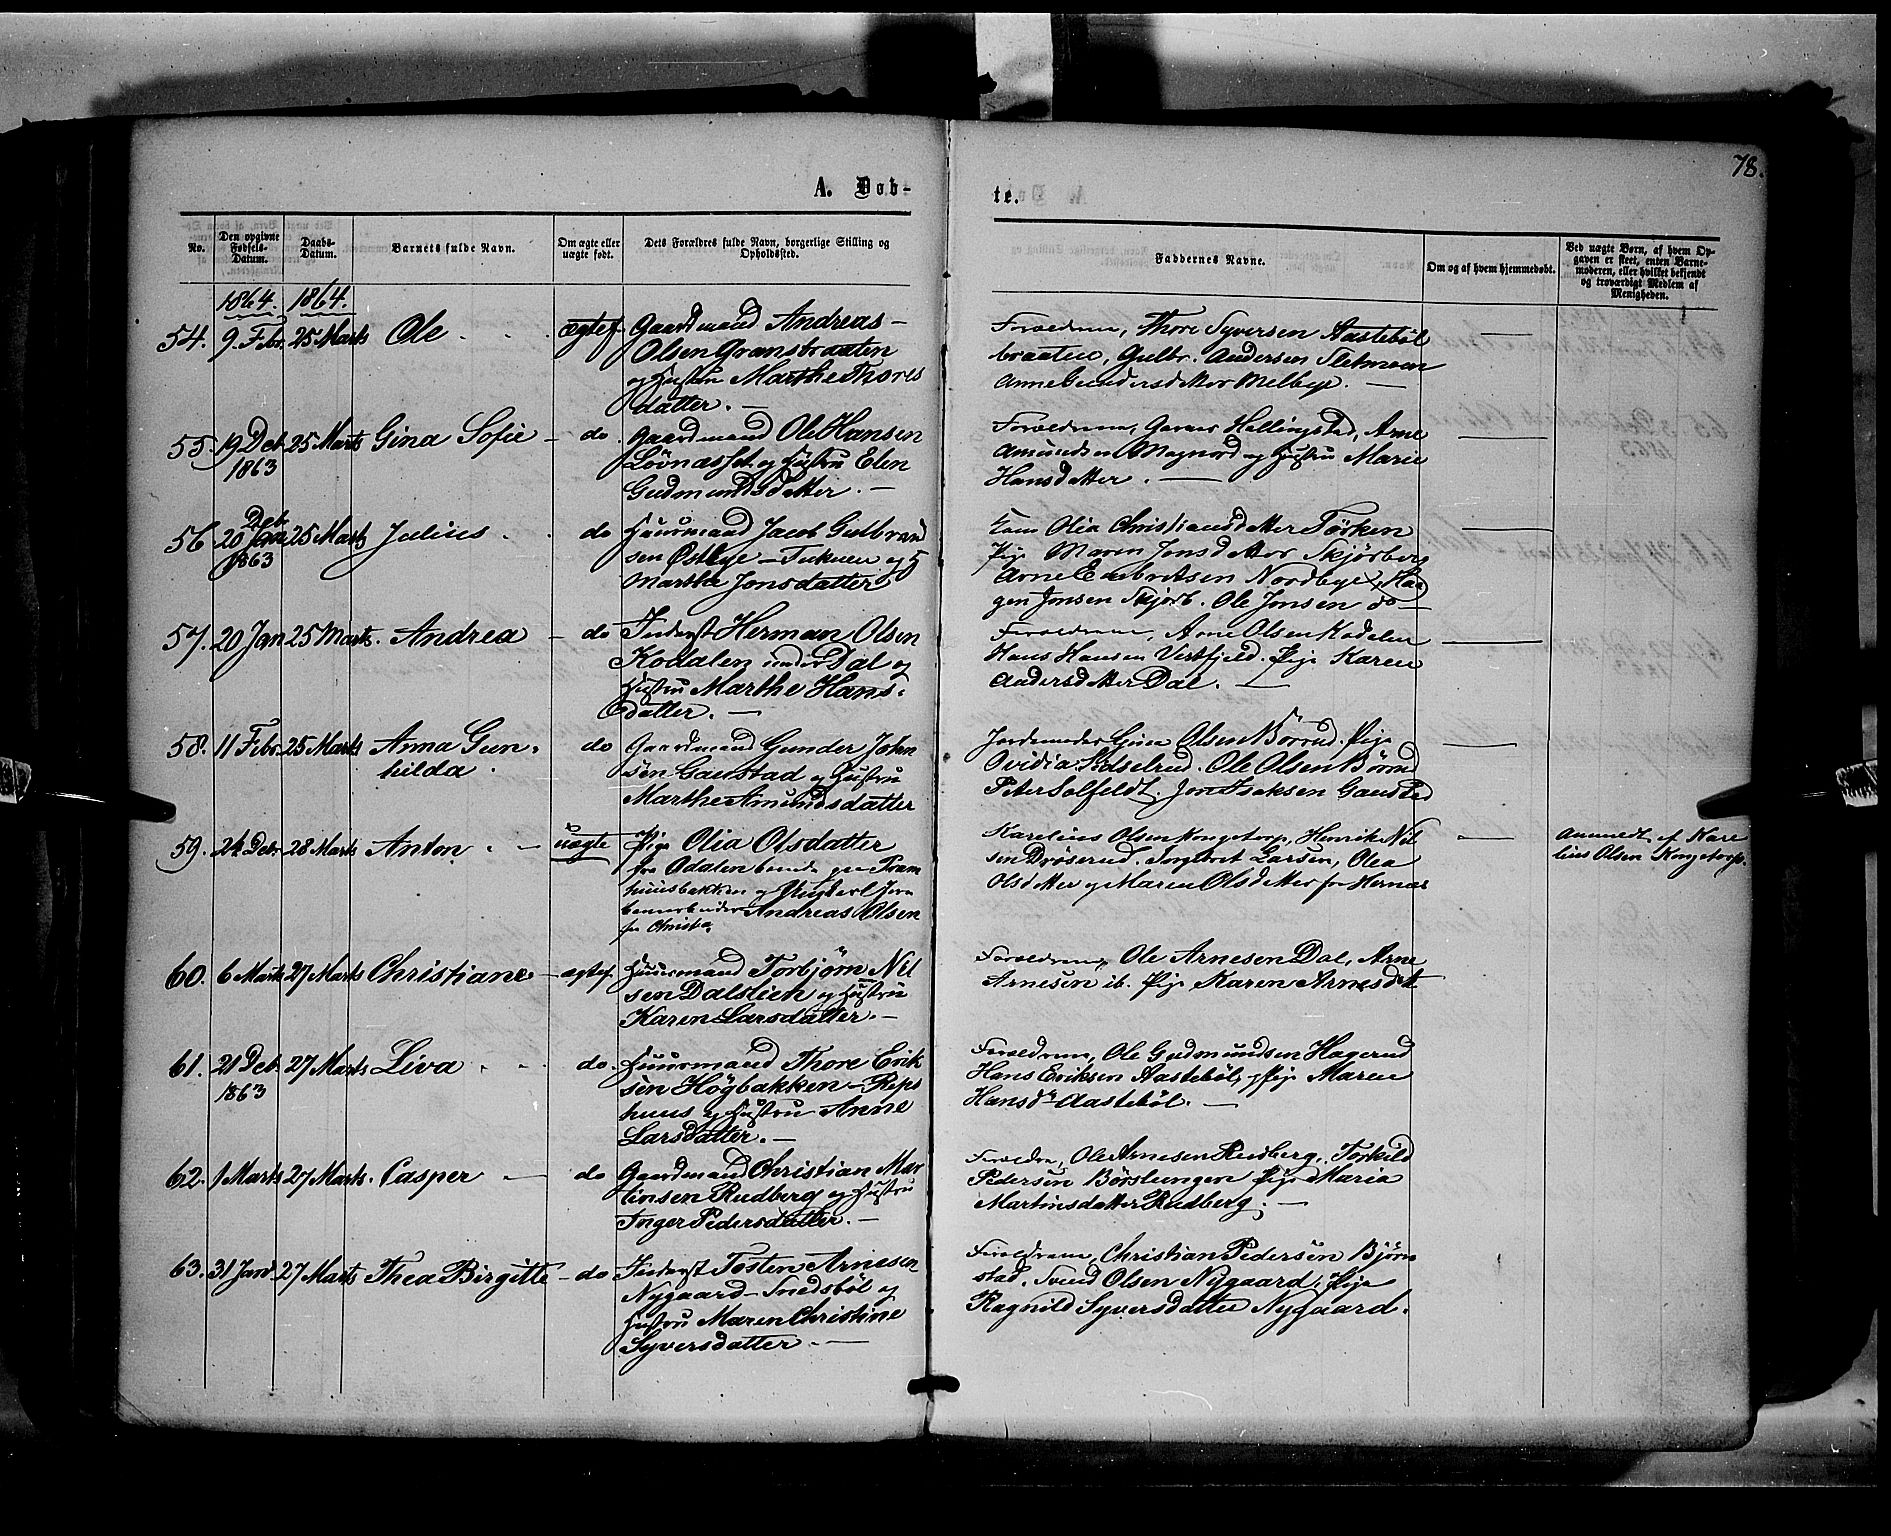 78.
A. Døb-
te.
No.
Den opgivne Fødsels-Datum.
Daabs-Datum.
Barnets fulde Navn.
Om ægte eller uægte født.
Dets Forældres fulde Navn, borgerlige Stilling og Opholdssted.
Faddernes Navne.
Om og af hvem hjemmedøbt.
Ved uægte Børn, af hvem Opgaven er skeet, enten Barnemoderen, eller hvilket bekjendt og troværdigt Medlem af Menigheden.
1864. 1864.
54. 9. Febr. 25 Marts Ole ægtef. Gaardmand Andreas
Olsen Granbraaten
og Hustru Marthe Thores
datter. —
Forældrene, Thore Syversen Aastebøl
braaten, Gulbr. Andersen Sletmoen
Anne Gundersdatter Melbye. —
55. 19 Deb. 25 Marts Gina Sofie — do. Gaardmand Ole Hansen
1863
Løvnæsset og Hustru Elen
Gudmundsdatter. —
Forældrene, Hellingstad, Arne
Amundsen Magnord og Hustru Marie
Hansdatter. —
56 20 Deb. 25 Marts Julius. do Huusmand Jacob Gulbrand
1863
sen Østbye og
Marthe Jonsdatter
Olia Christiansdatter Tørken
Pige Maren Jonsdatter Skjørberg
Arne Embretsen Nordbye, Haa
gen Jonsen Skjørb. Ole Jonsen do —
57. 20 Jan 25 Marts. Andrea — do Inderst Herman Olsen
Kodalen under Dal og
Hustru Marthe Hans-
datter. —
Forældrene, Arne Olsen Kodalen
Hans Hansen Vestfjeld. Pige Karen
Andersdatter Dal. —
58. 11 Febr. 25 Marts Anna Gun- do Gaardmand Gunder Johan
hilda.
sen Gaustad og Hustru
Marthe Amundsdatter
Jordemoder Gina Olsen Børud. Pige
Ovidia Ole Olsen Børud
Peter Solfeldt. Jon Isaksen Gaustad
59. 24 Deb. 28 Marts Anton. — uægte Pige Olia Olsdatter
fra Odalen boende paa Fram
huusbakken og Ungkarl Jern
banearbeider Andreas Olsen
fra Christia.
Karelius Olsen Kongstorp, Henrik Nil
sen Drøserud. Larsen, Olea
Olsdatter og Maren Olsdatter fra Hernæs
Anmeldt af Kare
lius Olsen Kongstorp.
60. 6 Marts 27 Marts Christiane — ægtef. Huusmand Torbjørn Nil
sen Dalstien og Hustru
Karen Larsdatter. —
Forældrene, Ole Arnesen Dal, Arne
Arnesen ib. Pige Karen Arnesdt
61. 21 Deb. 27 Marts Liva do. Huusmand Thore Erik
1863
sen Høgbakken — Reps
huus og Hustru Anne
Larsdatter. —
Forældrene, Ole Gudmundsen Hagerud
Hans Eriksen Aastebøl, Pige Maren
Hansdr Aastebøl. —
62. 1 Marts 27 Marts. Casper — do Gaardmand Christian Mar
tinsen Rudberg og Hustru
Inger Pedersdatter. —
Forældre, Ole Arnesen Rudberg, Torkild
Pedersen Børslungen Pige Maria
Martinsdatter Rudberg. —
63. 31 Jan 27 Marts Thea Birgitte — do Inderst Tosten Arnesen
Nygaard — Snedsbøl og
Hustru Maren Christine
Syversdatter. —
Forældrene, Christian Pedersen Bjørn
stad. Svend Olsen Nygaard, Pige
Ragnild Syversdatter Nygaard.